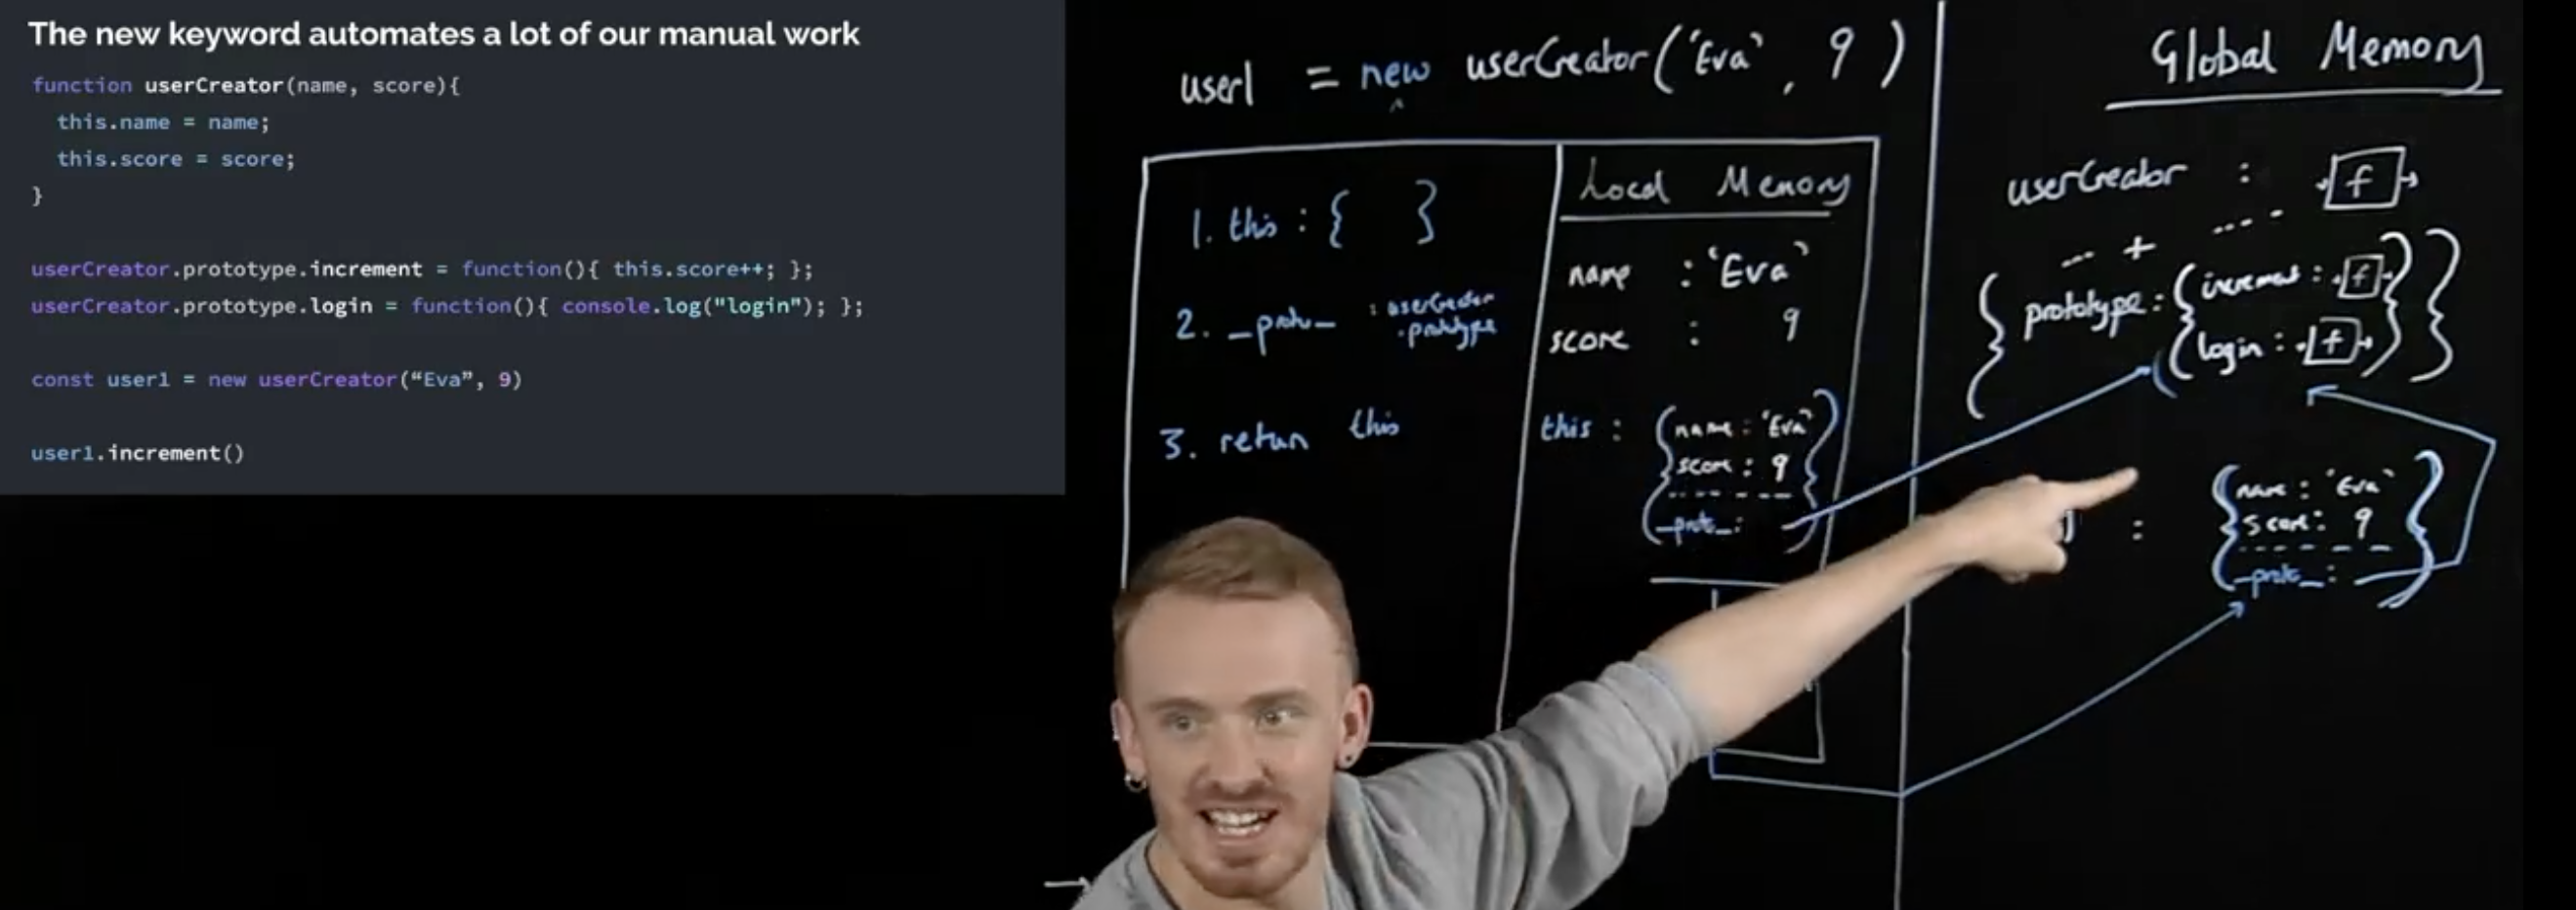 The new keyword automates a lot of our manual work
function userCreator(name, score){
this.name = name;
this.score = score;
}
userCreator.prototype.increment = function(){ this.score++; };
userCreator.prototype.login = function(){ console.log("login"); };
const user1 = new userCreator(“Eva”, 9)
user1.increment()
user1 = new userCreator('Eva', 9)
1. this : { }
2. _proto_ : userCreator
.prototype
3. return this
Local Memory
name : 'Eva'
score : 9
this : { name : 'Eva'
score : 9
_proto_ : }
Global Memory
userCreator : f
+
{ prototype : { increment : f
login : f } }
: { name : 'Eva'
score : 9
_proto_ : }